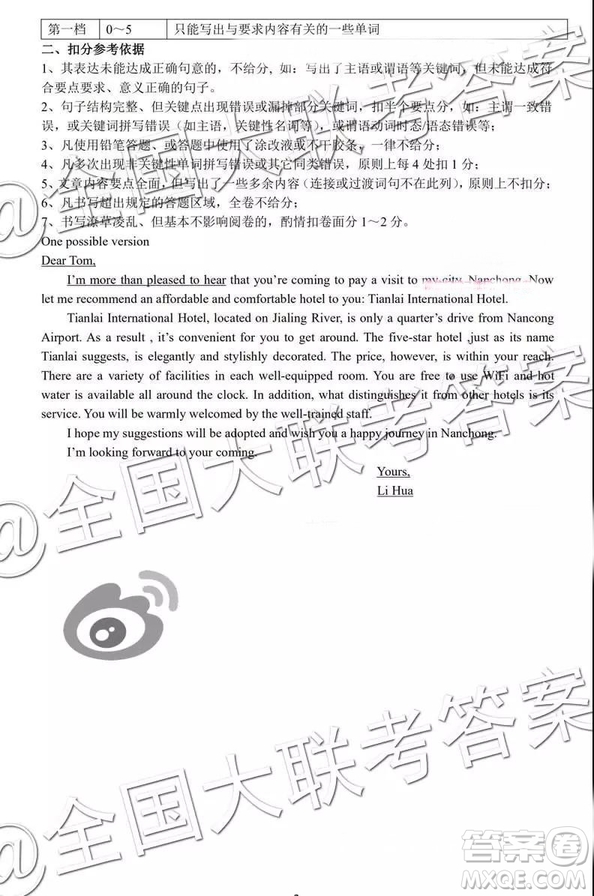 第一档 0～5 只能写出与要求内容有关的一些单词
二、扣分参考依据
1、其表达未能达成正确句意的，不给分, 如：写出了主语或谓语等关键词，但未能达成符
合要点要求、意义正确的句子。
2、句子结构完整、但关键点出现错误或漏掉部分关键词，扣半个要点分，如：主谓一致错
误，或关键词拼写错误（如主语，关键性名词等），或谓语动词时态/语态错误等；
3、凡使用铅笔答题、或答题中使用了涂改液或不干胶条，一律不给分；
4、凡多次出现非关键性单词拼写错误或其它同类错误，原则上每 4 处扣 1 分；
5、文章内容要点全面，但写出了一些多余内容（连接或过渡词句不在此列），原则上不扣分；
6、凡书写超出规定的答题区域，全卷不给分；
7、书写潦草凌乱、但基本不影响阅卷的，酌情扣卷面分 1～2 分。
One possible version
Dear Tom,
I'm more than pleased to hear that you're coming to pay a visit to my city, Nanchong. Now
let me recommend an affordable and comfortable hotel to you: Tianlai International Hotel.
Tianlai International Hotel, located on Jialing River, is only a quarter's drive from Nancong
Airport. As a result , it's convenient for you to get around. The five-star hotel ,just as its name
Tianlai suggests, is elegantly and stylishly decorated. The price, however, is within your reach.
There are a variety of facilities in each well-equipped room. You are free to use WiFi and hot
water is available all around the clock. In addition, what distinguishes it from other hotels is its
service. You will be warmly welcomed by the well-trained staff.
I hope my suggestions will be adopted and wish you a happy journey in Nanchong.
I'm looking forward to your coming.
Yours,
Li Hua
@全国大联考答案
@全国大联考答案
@全国大联考答案
答案圈
MXQE.COM